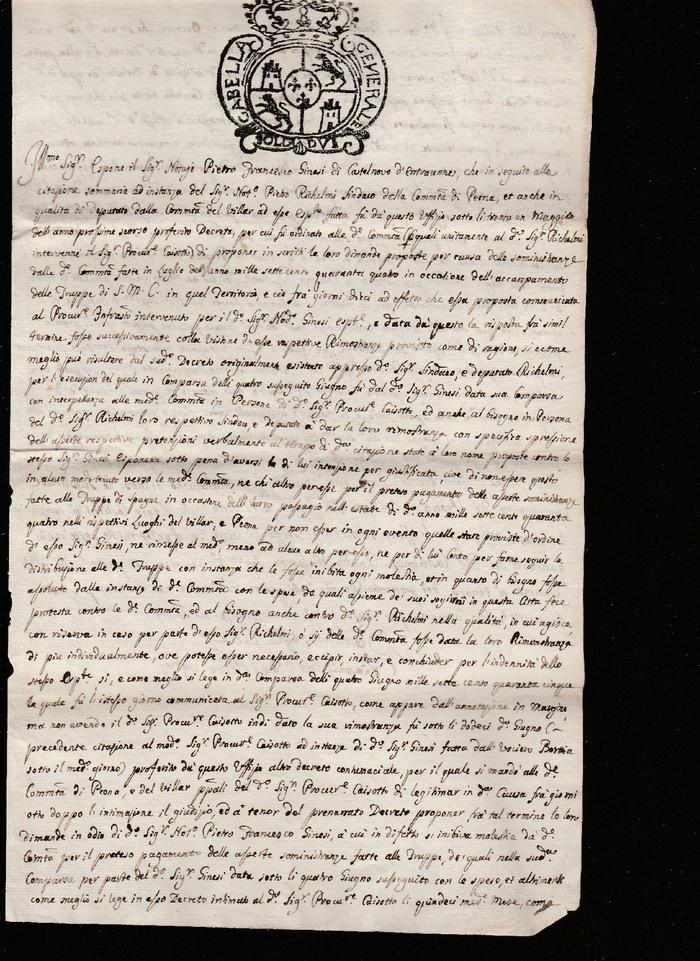 GABELLA GENERALE
SOLDI DVI
Ill.mo Sig.r Espone il Sig.r Notajo Pietro Francesco Ginesi di Castelnovo d'Entraunne, che in seguito alla
citazione sommaria ad instanza del Sig.r Not.o Pietro Richelmi Sindaco della Commtà di Peona, et anche in
qualità di deputato dalla Commtà del Villar ad esso Esp.te fatta fù da questo Uffizio sotto li trenta un Maggio
dell'anno prossimo scorso proferto Decreto, per cui fù ordinato alle d.e Commtà (p quali unitamente al d.o Sig.r Richelmi
intervenne il Sig.r Procur.e Caisotti) di proponer in scritti le loro dimande proposte per causa delle somministranze
dalle d.e Commtà fatte in Luglio dell'anno mille sette cento quaranta quattro in occasione dell'accampamento
delle Truppe di S. M. C. in quel Territorio, e ciò frà giorni dieci ad effetto che essa proposta communicata
al Procur.e Infrasto intervenuto per il d.o Sig.r Not.o Ginesi Esp.te, e data da questo la risposta frà simil
termine, fosse successivamente colla visione di esse rispettive Rimostranze provisto come di ragione, si e come
meglio può risultare dal sud.o Decreto originalmente esistente appresso d.o Sig.r Sindaco, e deputato Richelmi
per l'esecution del quale in Comparsa delli quattro susseguito Giugno fù dal d.o Sig.r Ginesi data sua Comparsa
con interpellanza alle med.e Commtà in Persona di d.o Sig.r Procur.e Caisotto, ed anche al bisogno in Persona
del d.o Sig.r Richelmi loro respettivo Sindaco, e deputato à dar la loro rimostranza con specifica espressione
dell'asserte respettive pretenzioni verbalmente al tempo di d.a citazione state à loro nome proposte contro lo
stesso Sig.r Ginesi Esponente sotto pena d'aversi la di lui intenzione per giustificata, cioè di non essere questo
in alcun modo tenuto verso le med.e Commtà, ne chi altro per esse per il preteso pagamento delle asserte somministranze
fatte alle Truppe di Spagna in occasione dell' loro passagio nell'estate di d.o anno mille sette cento quaranta
quatro nelli rispettivi Luoghi del Villar, e Peona per non esser in ogni evento quelle state proviste d'ordine
di esso Sig.r Ginesi, ne rimesse al med.o, meno ad alcun altro per esso, ne per di lui conto per farne seguir la
distribuzione alle d.e Truppe con instanza che le fosse inibita ogni molestia, et in quanto di bisogno fosse
assoluto dalle instanze di d.e Commtà con le spese, de quali assieme de' suoi sogiorni in questa Città fece
protesta contro le d.e Commtà, ed al bisogno anche contro d.o Sig.r Richelmi nella qualità, in cui agisce
con riserva in caso per parte d'esso Sig.r Richelmi, ò sij delle d.e Commtà fosse data la loro Rimostranza
di più individualmente, ove potesse esser necessario, eccipir, instar, e conchiuder per l'indennità dello
stesso Esp.te si, e come meglio si lege in d.a Comparsa delli quatro Giugno mille sette cento quaranta cinque
la quale fù l'istesso giorno communicata al Sig.r Procur.e Caisotto, come appare dall'annotazione in Margine
ma non avendo il d.o Sig.r Procur.e Caisotto indi dato la sua rimostranza fù sotto li dodeci d.o Giugno (
precedente citazione al med.o Sig.r Procur.e Caisotto ad instanza di d.o Sig.r Ginesi fatta dall'Usciere
sotto il med.o giorno) profferito da questo Uffizio altro decreto contumaciale, per il quale si mandò alle d.e
Commtà di Peona, e del Villar p.pali del d.o Sig.r Procur.e Caisotti di legitimar in d.a Causa frà giorni
otto doppo l'intimazione il giudizio, ed à tenor del prenarrato Decreto proponer frà tal termine le loro
dimande in odio di d.o Sig.r Not.o Pietro Francesco Ginesi, à cui in difetto si inibiva molestia da d.e
Comtà per il preteso pagamento delle asserte somministranze fatte alle Truppe, de' quali nella sud.a
Comparsa per parte del d.o Sig.r Ginesi data sotto li quatro Giugno susseguito con le spese, et altrimenti
come meglio si lege in esso Decreto intimato al d.o Sig.r Procur.e Caisotto li quindeci med.o Mese, come